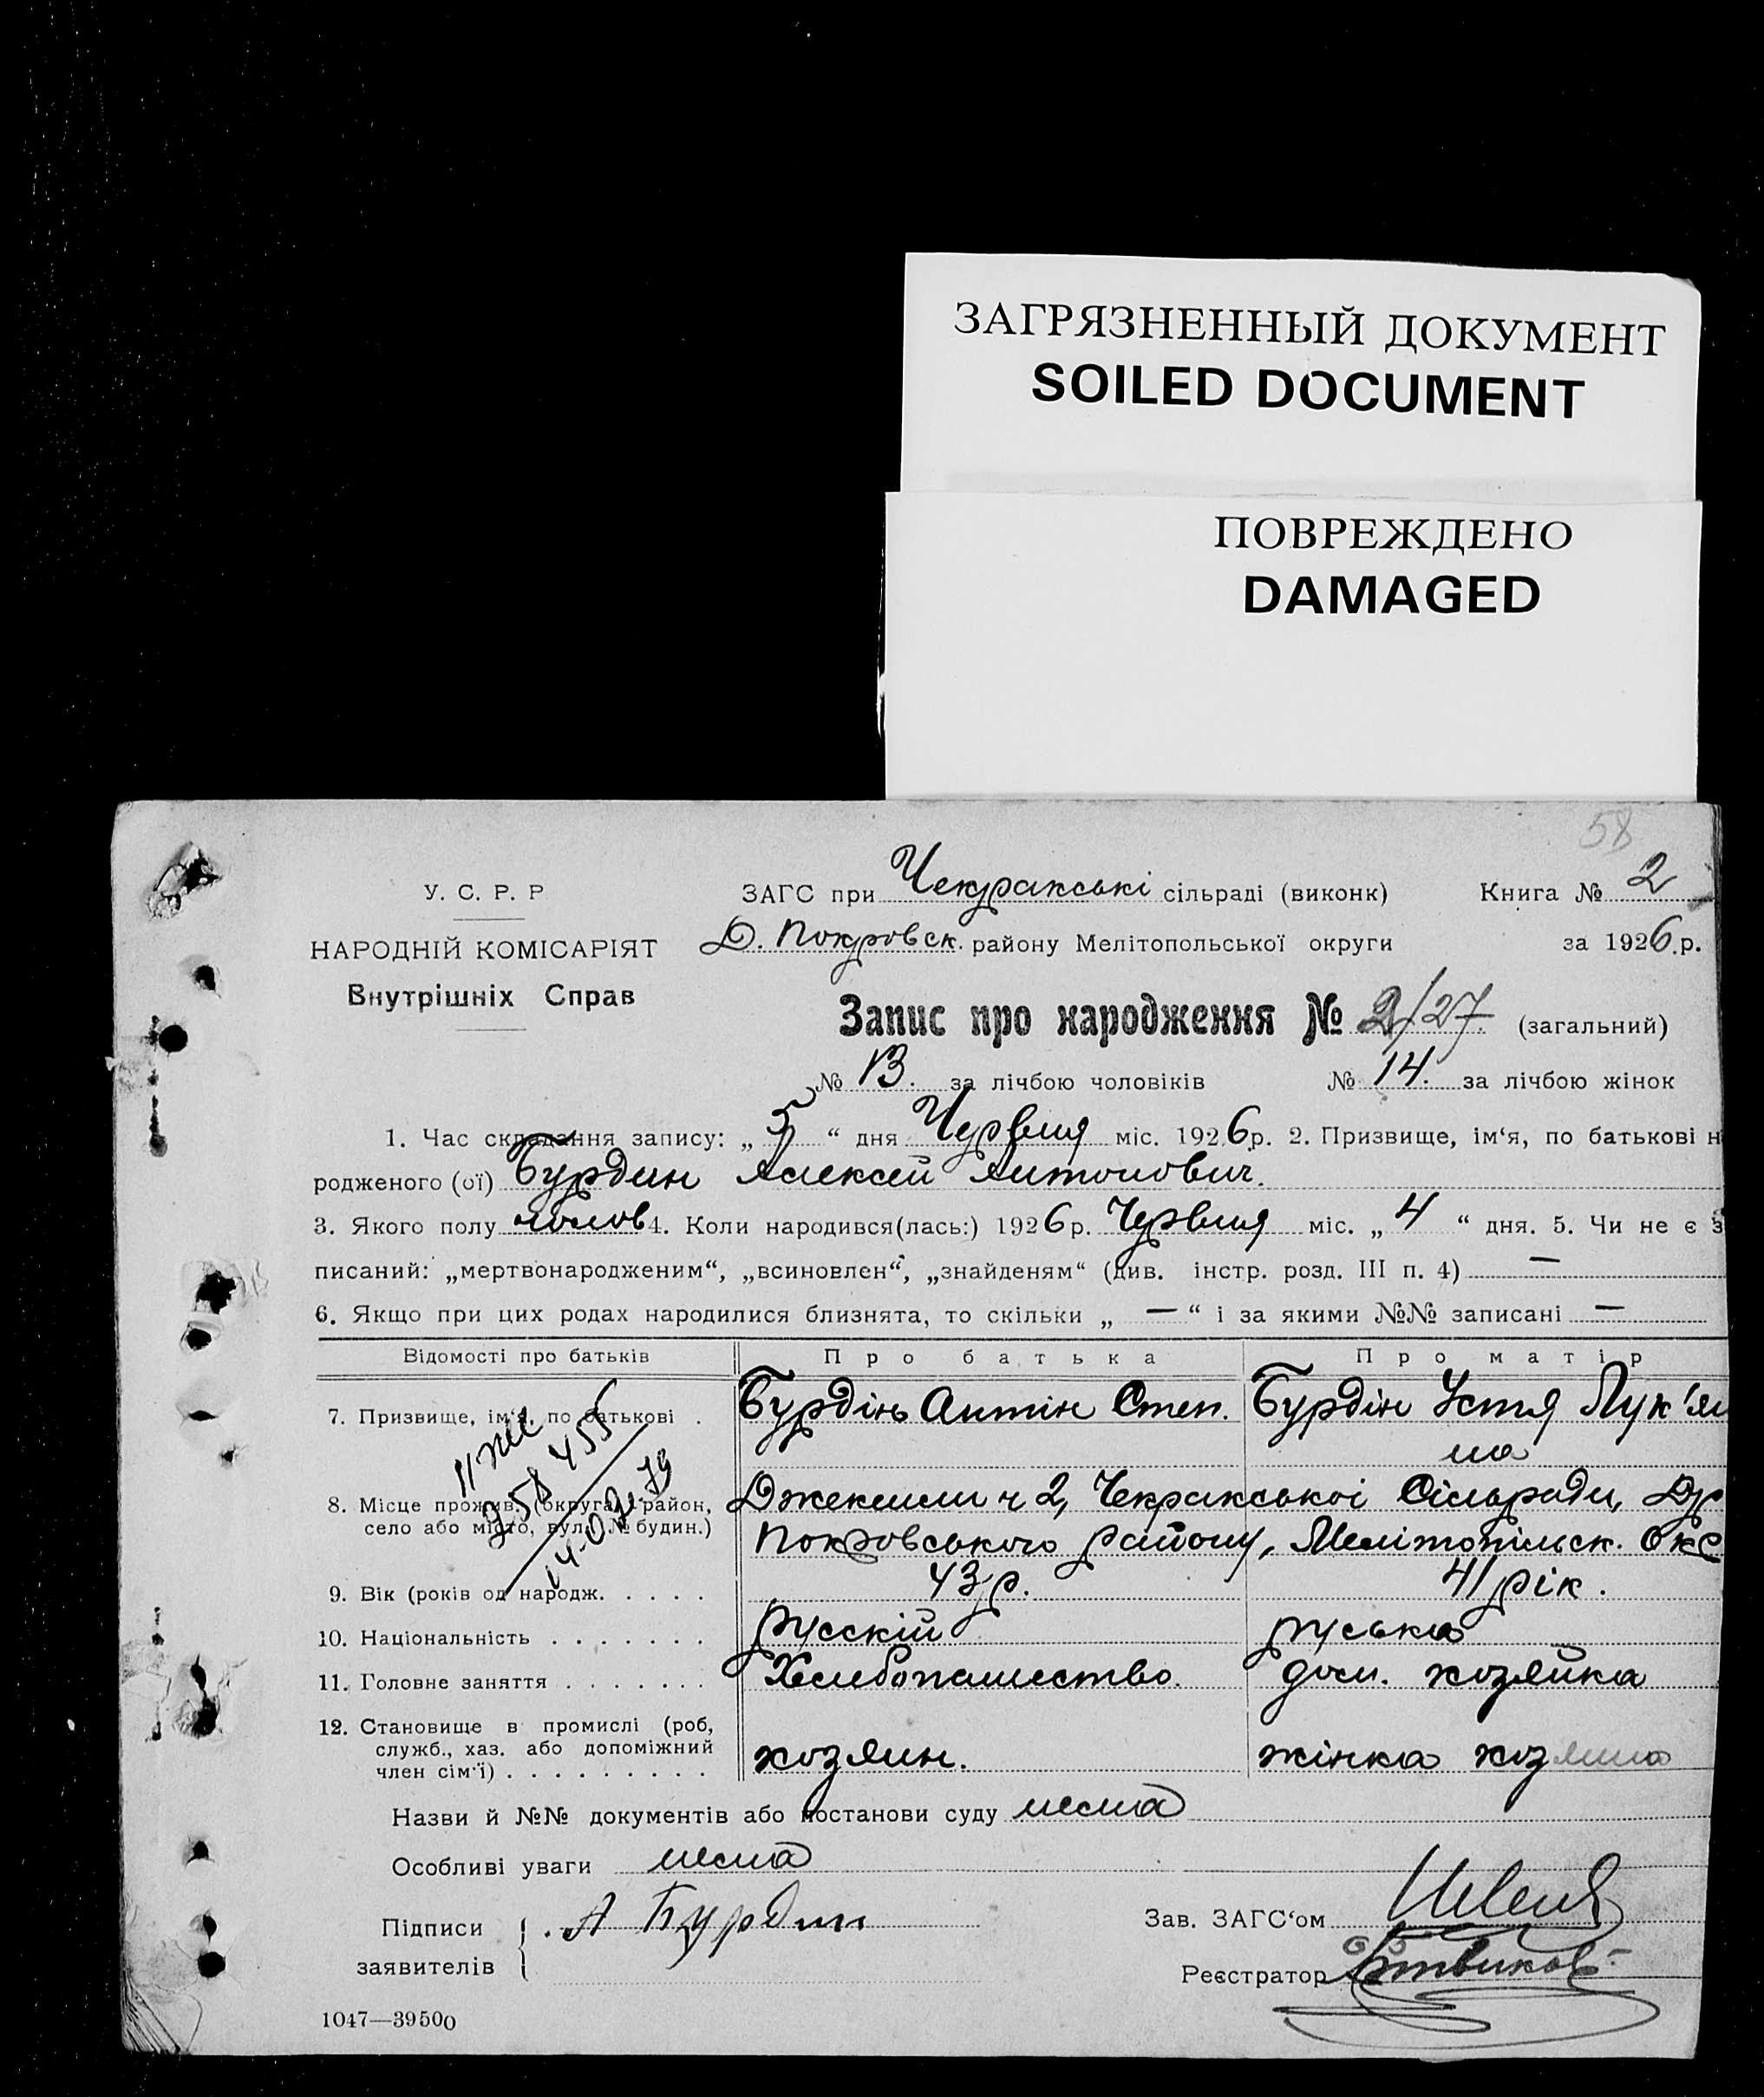 ЗАГРЯЗНЕННЫЙ ДОКУМЕНТ
SOILED DOCUMENT
ПОВРЕЖДЕНО
DAMAGED
58
У. С. Р. Р
НАРОДНІЙ КОМІСАРІЯТ
Внутрішніх Справ
ЗАГС при Чекракські сільраді (виконк) Книга № 2
Д. Покровск. району Мелітопольської округи за 1926.р.
Запис про народження № 2/27. (загальний)
№ 13. за лічбою чоловіків № 14. за лічбою жінок
1. Час складання запису: „ 5 “ дня Червня міс. 1926р. 2. Призвище, ім‘я, по батькові н
родженого (ої) Бурдин Алексей Антонович.
3. Якого полу чолов 4. Коли народився(лась:) 1926р. Червня міс. „ 4 “ дня. 5. Чи не є з
писаний: „мертвонародженим“, „всиновлен“, „знайденям“ (див. інстр. розд. III п. 4) —
6. Якщо при цих родах народилися близнята, то скільки „ — “ і за якими №№ записані —
Відомості про батьків Про батька Про матір
7. Призвище, ім‘я, по батькові . Бурдінь Антін Степ. Бурдін Устя Лук'ян
на
8. Місце прожив. (округа, район, Джекелли ч 2, Чекракської Сільради,
село або місто, вул. № будин.) Покровського району, Мелітопільск. Окр
958 455
14-02-79
9. Вік (років од народж. . . . . 43 р. 41 рік.
10. Національність . . . . . . . русскій руська
11. Головне заняття . . . . . . . Хлебопашество. дом. хозяйка
12. Становище в промислі (роб,
служб., хаз. або допоміжний
член сім‘ї) . . . . . . . . . хозяин. жінка хозяина
Назви й №№ документів або постанови суду нема
Особливі уваги нема
Підписи
заявителів . А Бурдин
Зав. ЗАГС‘ом
Реєстратор
1047—39500